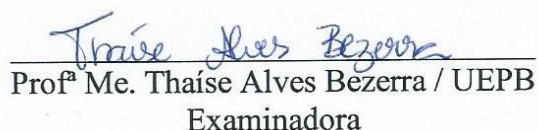 Thaíse Alves Bezerra
Profª Me. Thaíse Alves Bezerra / UEPB
Examinadora